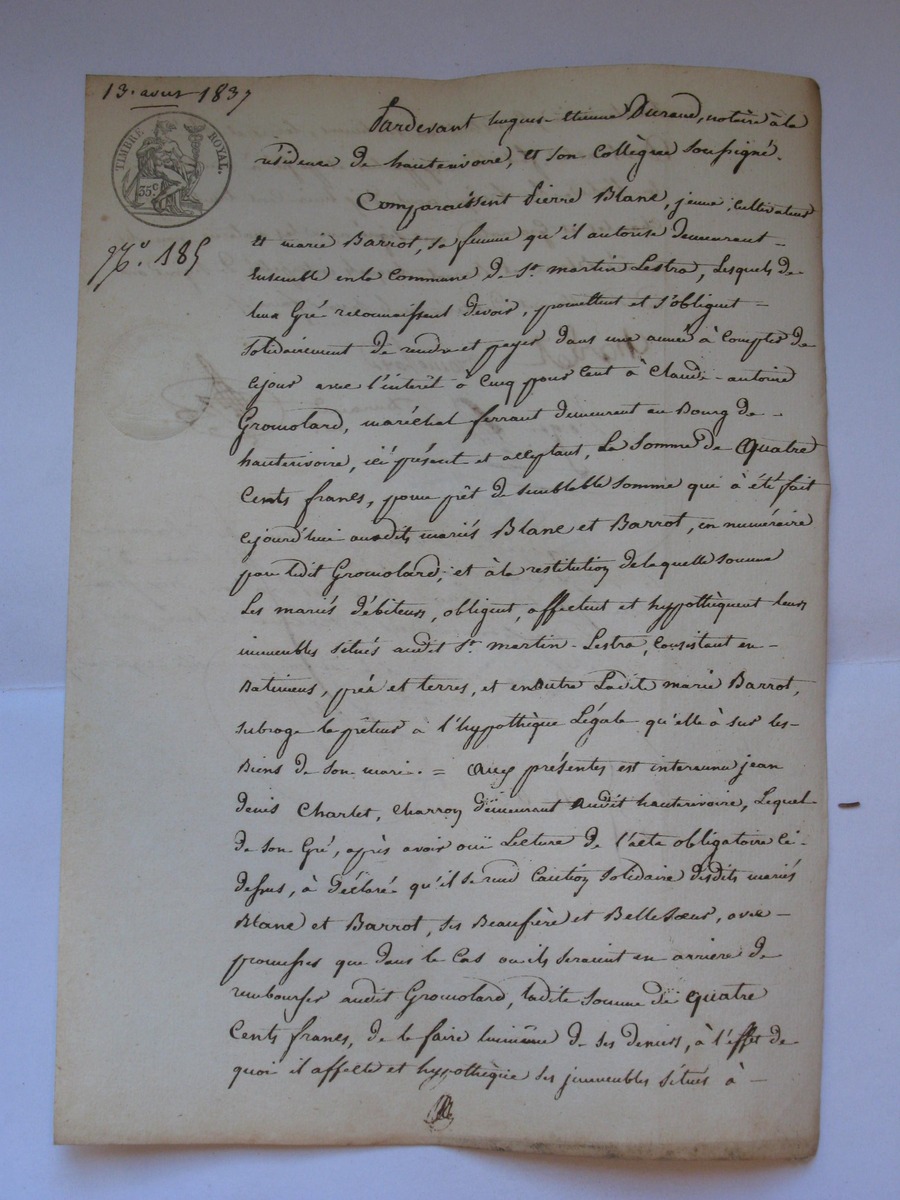 13. avril 1837
TIMBRE ROYAL.
35c
No. 185
Pardevant hugues-etienne Durand, notaire à la
résidence de hauterivoire, et son Collègue Soussigné.
Comparaissent Pierre Blanc, jeune, Cultivateur
et marie Barrot, sa femme qu'il autorise demeurant -
Ensemble en la Commune de St martin Lestra, Lesquels de
leur Gré reconnaissent devoir, promettent et s'obligent -
Solidairement de rendre et payer dans une année à Compter de
cejour avec l'interêt à Cinq pour Cent à Claude-antoine
Gromolard, maréchal ferrant demeurant au Bourg de -
hauterivoire, ici présent et acceptant, La Somme de quatre
Cents francs, pour prêt de semblable somme qui à été fait
cejourd'hui auxdits mariés Blanc et Barrot, en numéraire
par ledit Gromolard, et à la restitution de laquelle somme
Les mariés débiteurs, obligent, affectent et hypothèquent leurs
immeubles situés audit St. martin-Lestra, Consistant en -
Batimens, prés et terres, et en outre Ladite marie Barrot,
subroge le prêteur à l'hypothèque Légale qu'elle à sur les -
Biens de son mari. = aux présentes est intervenu jean
denis Charlet, charron demeurant audit hauterivoire, Lequel
de son Gré, après avoir ouï Lecture de l'acte obligatoire Ci-
dessus, à déclaré qu'il se rend Caution Solidaire desdits mariés
Blanc et Barrot, ses Beaufrère et Belle Soeur, avec -
promesses que dans le Cas ou ils seraient en arrière de
rembourser audit Gromolard, ladite Somme de quatre
Cents francs, de le faire luimême de ses deniers, à l'effet de
quoi il affecte et hypothèque ses immeubles situés à -